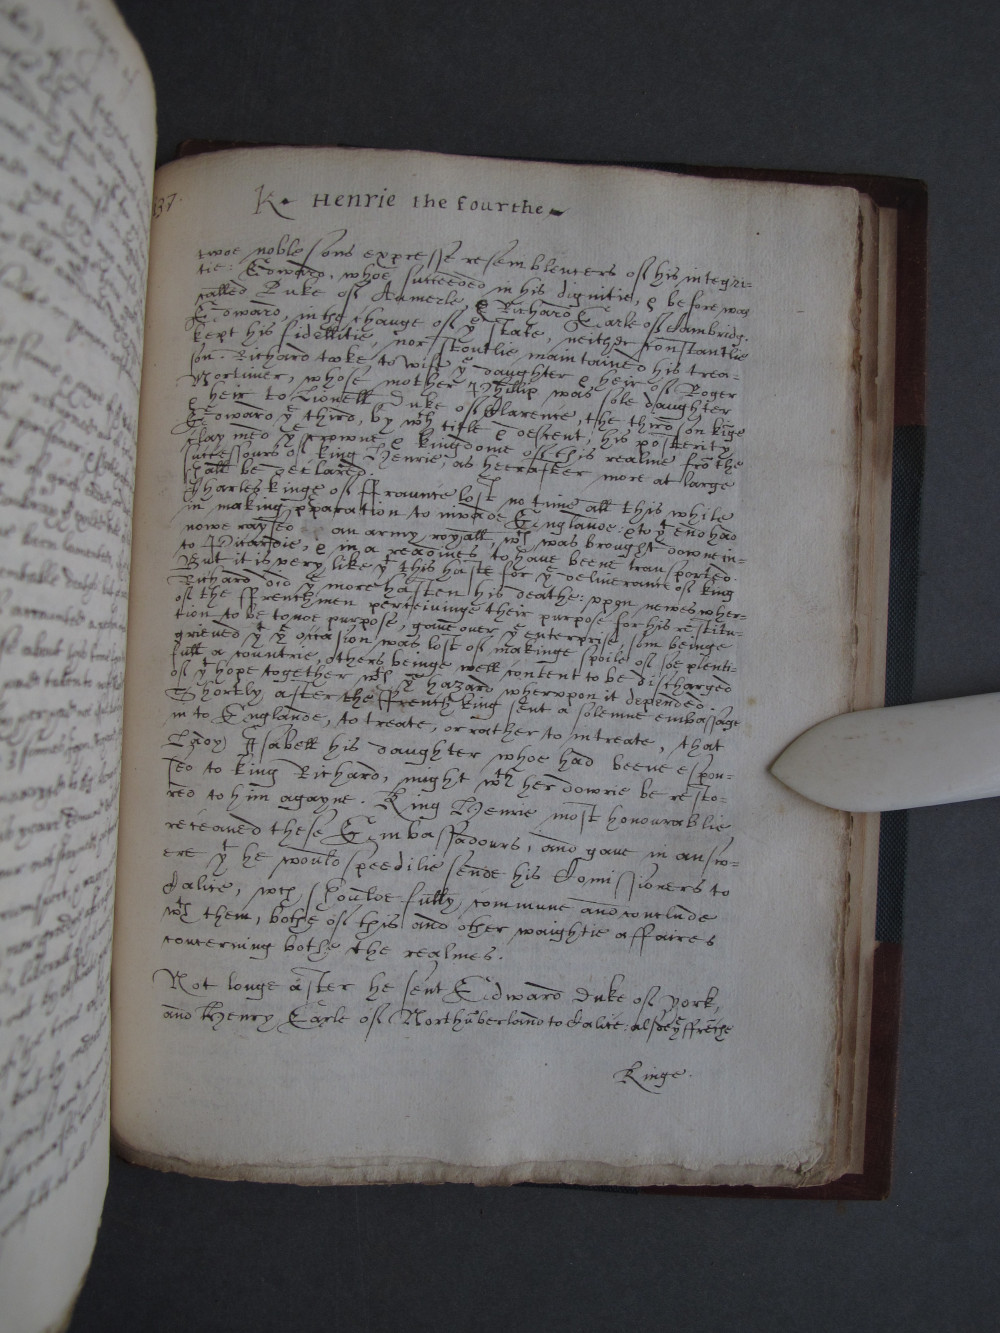 37.
K. Henrie the fourthe
twoe noble sons expresse resemblencers of his integri-
tie: Edward, whoe succeeded in his dignitie, & before was
called Duke of Aumerle, & Richard Earle of Cambridg.
Edward, in the change of yᵉ state, neither constantlie
kept his fidellitie, nor stoutlie maintained his trea-
son. Richard tooke to wife yᵉ daughter & heir of Roger
Mortimer, whose mother Phillip was sole daughter
& heir to Lionell Duke of Clarence, the third son kinge
Edward yᵉ third, by wᶜʰ title & descent, his posterity
claymed yᵉ crowne & kingdome of this realme frō the
successours of king Henrie, as heerafter more at large
shall be declared.
Charles kinge of ffraunce lost no time all this while
in making pparation to invade Englande. & to yᵗ end had
nowe raysed an army royall, wᶜʰ was brought downe in-
to Picardie, & in a readines to have beene transported.
But it is very like yᵗ this haste for yᵉ deliverance of king
Richard did yᵉ more hasten his deathe: vppon newes wher-
of the ffrenchmen perceivinge their purpose for his restitu-
tion to be to noe purpose, gave over yᵉ enterprise, som beinge
grieved yᵗ yᵉ occasion was lost of makinge spoile of soe plenti-
full a countrie, others beinge well content to be discharged
of yᵗ hope together wᵗʰ yᵉ hazard whervpon it depended.
Shortly after the ffrench king sent a solemne embassage
in to Englande, to treate, or rather to intreate, that
Lady Isabell his daughter whoe had beene espou-
sed to king Richard, might wᵗʰ her dowrie be resto-
red to him agayne. King Henrie most honourablie
receaved these Embassadours, and gave in answ-
ere yᵗ he would speedilie sende his Comissioners to
Calice, wᶜʰ shoulde fully commune and conclude
wᵗʰ them, bothe of this and other waightie affaires
concerning bothe the realmes.
Not longe after he sent Edward duke of york,
and Henry Earle of Northūberland to Calice: also yᵉ ffrēche
Kinge.